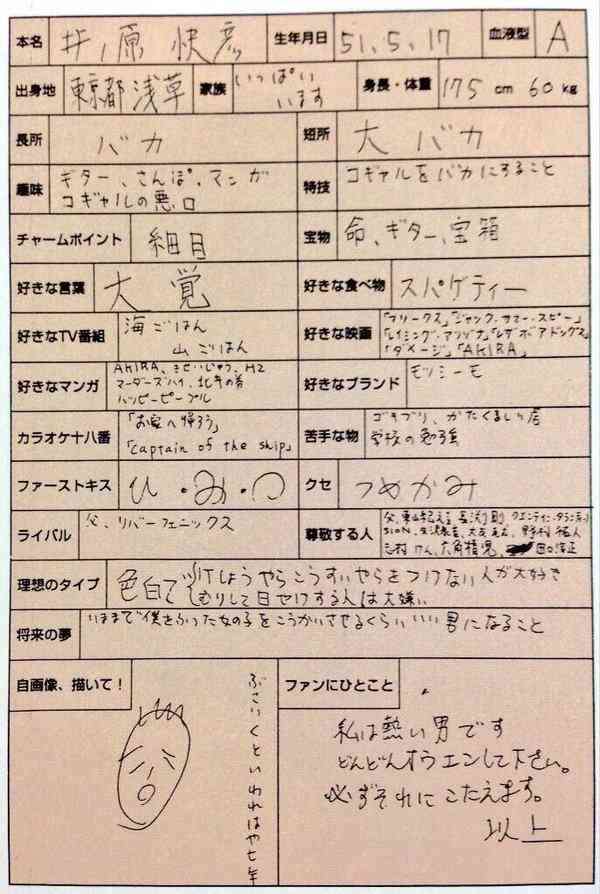 本名 井ノ原 快彦 生年月日 51.5.17 血液型 A
出身地 東京都浅草 家族 いっぱい
います
身長・体重 175cm 60kg
長所 バカ 短所 大バカ
趣味 ギター、さんぽ、マンガ
コギャルの悪口
特技 コギャルをバカにすること
チャームポイント 細目 宝物 命、ギター、宝箱
好きな言葉 大覚 好きな食べ物 スパゲティー
好きなTV番組 海ごはん
山ごはん
好きな映画 「フリークス」「ジャック・サマースビー」
「レイジング・アリゾナ」「レザボアドッグス」
「ダメージ」「AKIRA」
好きなマンガ AKIRA、きせいじゅう、H2
マーダーズハイ、北斗の拳
ハッピーピープル
好きなブランド モツシーモ
カラオケ十八番 「お家へ帰ろう」
「captain of the ship」
苦手な物 ゴキブリ、かたくるしい店
学校の勉強
ファーストキス ひ・み・つ クセ つめかみ
ライバル 父、リバーフェニックス
尊敬する人 父、東山紀之、長渕剛、クエンティン・タランティーノ
SION、矢沢永吉、大友克洋、野村
志村けん、六角精児、田口浩正
理想のタイプ 色白で けしょうやらこうすいやらをつけない人が大好き
むりして日やけする人は大嫌い
将来の夢 いままで僕をふった女の子をこうかいさせるくらいいい男になること
自画像、描いて!
ぶさいくといわれはや七年
ファンにひとこと
私は熱い男です
どんどんオウエンして下さい。
必ずそれにこたえます。
以上